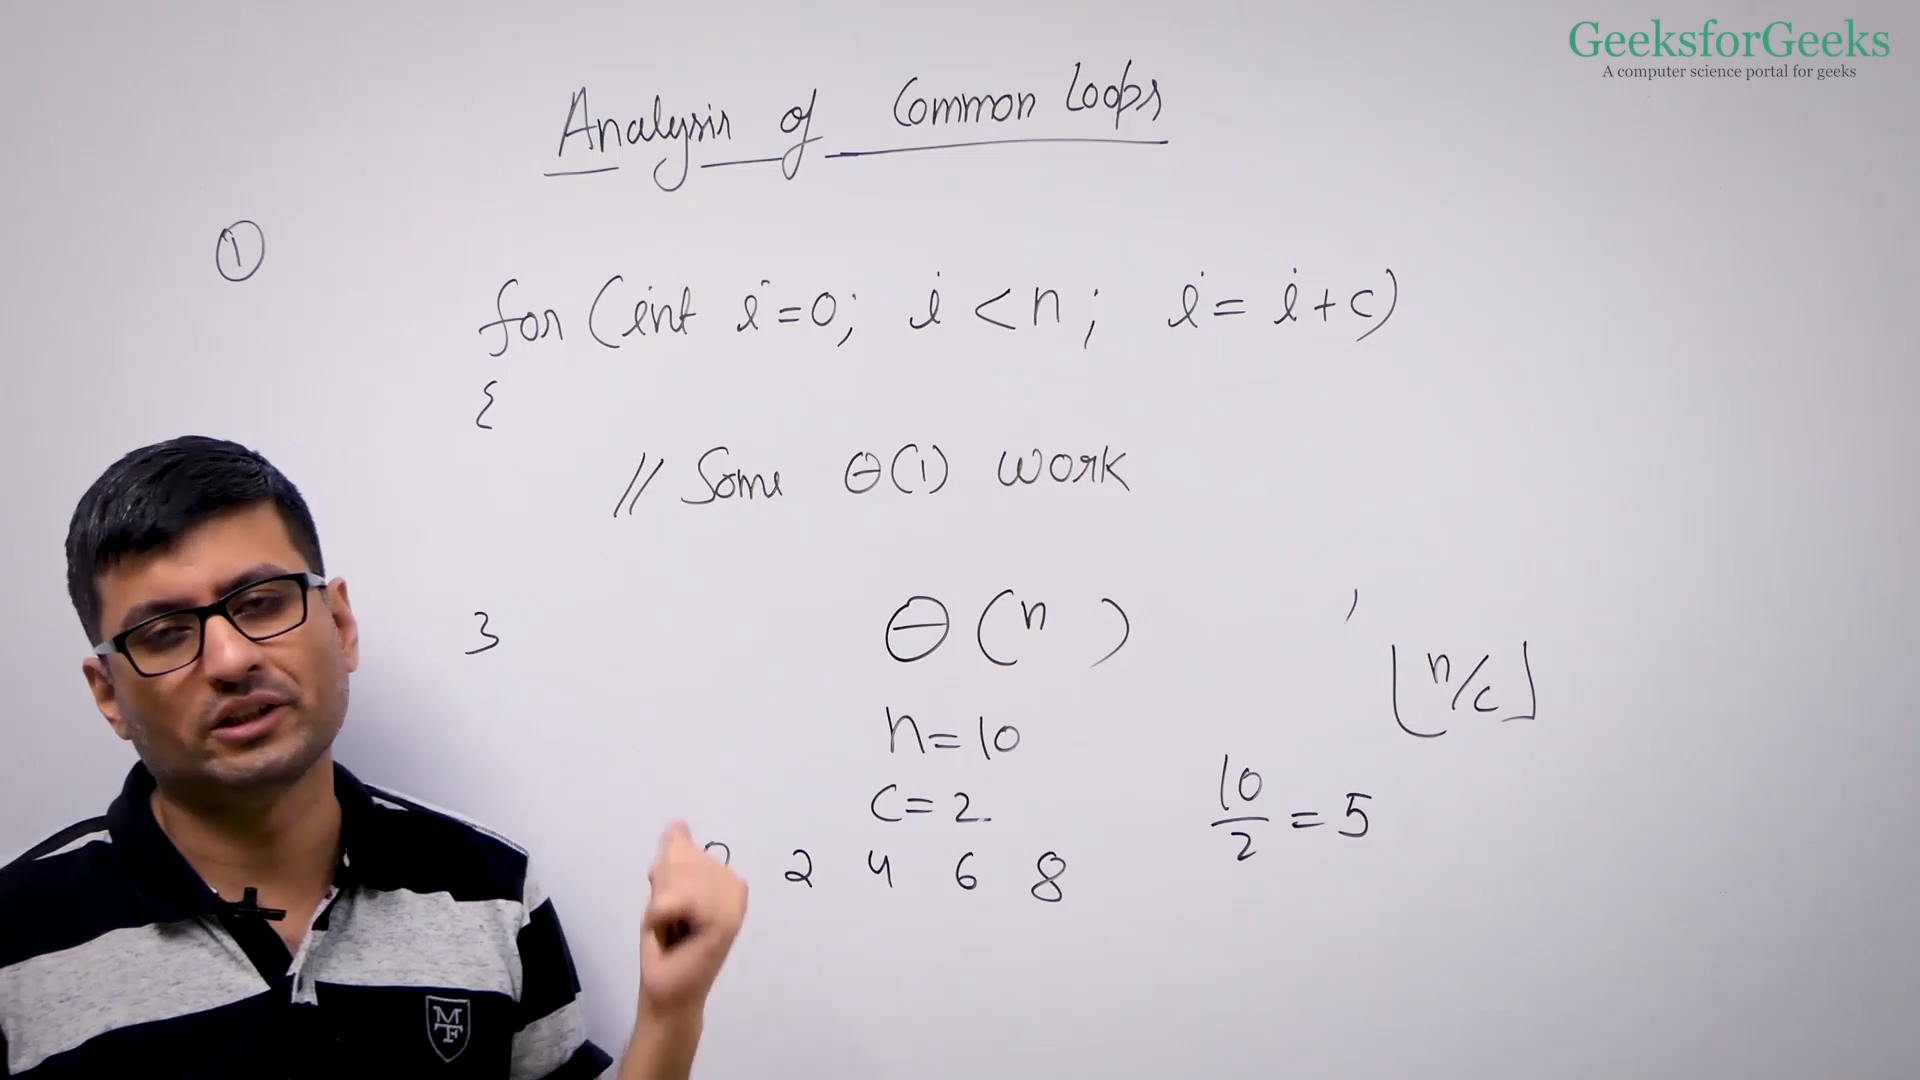 GeeksforGeeks
A computer science portal for geeks
Analysis of Common Loops
①
for (int i=0; i < n; i = i + c)
{
// Some Θ(1) work
}
Θ(n)
⌊n/c⌋
n=10
c=2.
10/2 = 5
2 4 6 8
MTF